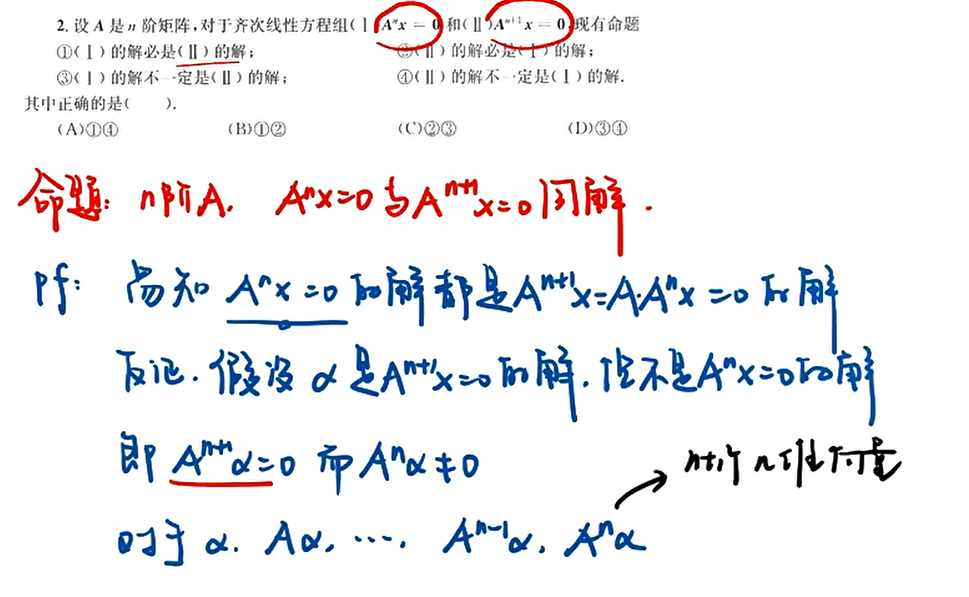 2. 设 A 是 n 阶矩阵,对于齐次线性方程组(Ⅰ)Aⁿx = 0 和(Ⅱ)Aⁿ⁺¹x = 0,现有命题
①(Ⅰ)的解必是(Ⅱ)的解; ②(Ⅱ)的解必是(Ⅰ)的解;
③(Ⅰ)的解不一定是(Ⅱ)的解; ④(Ⅱ)的解不一定是(Ⅰ)的解.
其中正确的是( ).
(A)①④ (B)①② (C)②③ (D)③④
命题: n阶A. Aⁿx=0与Aⁿ⁺¹x=0同解.
pf: 易知 Aⁿx=0 的解都是Aⁿ⁺¹x=A·Aⁿx=0 的解
反证. 假设 α 是Aⁿ⁺¹x=0的解, 但不是Aⁿx=0的解
即 Aⁿ⁺¹α=0 而 Aⁿα≠0
n+1个 n维向量
对于 α. Aα, ···, Aⁿ⁻¹α, Aⁿα